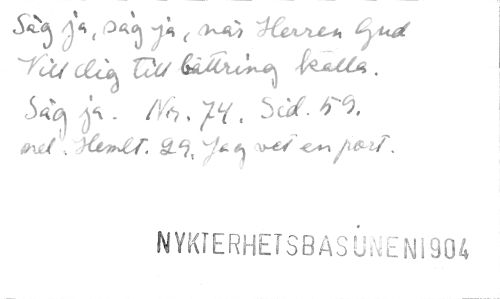 Säg ja, säg ja, när Herren Gud
Vill dig till bättring kalla.
Säg ja. Nr. 74. Sid. 59.
mel. Hemlt. 29. Jag vet en port.
NYKTERHETSBASUNEN 1904